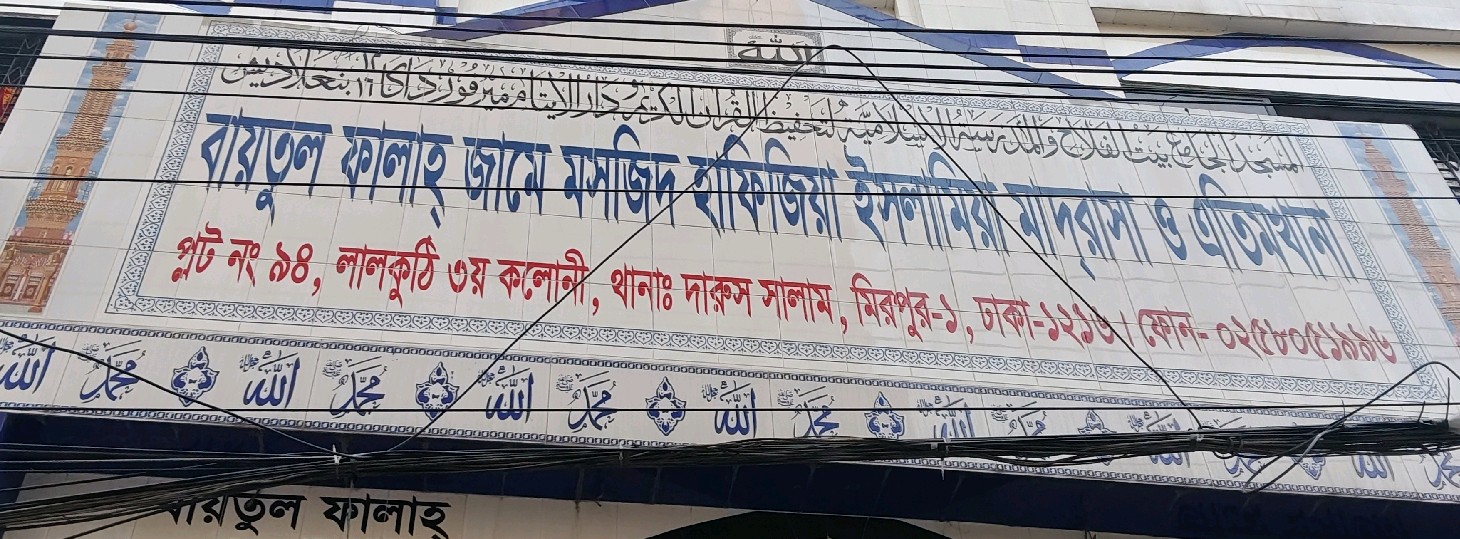 الله
المسجد الجامع بيت الفلاح والمدرسة الإسلامية لتحفيظ القرآن الكريم ودار الأيتام ميرفور داكا ١٦ بنغلاديش
বায়তুল ফালাহ্ জামে মসজিদ হাফিজিয়া ইসলামিয়া মাদ্রাসা ও এতিমখানা
প্লট নং ৯৪, লালকুঠি ৩য় কলোনী, থানাঃ দারুস সালাম, মিরপুর-১, ঢাকা-১২১৬। ফোন- ০২৫৮০৫১৯৯৬
الله محمد الله محمد الله محمد الله محمد الله محمد الله محمد الله محمد
বায়তুল ফালাহ্